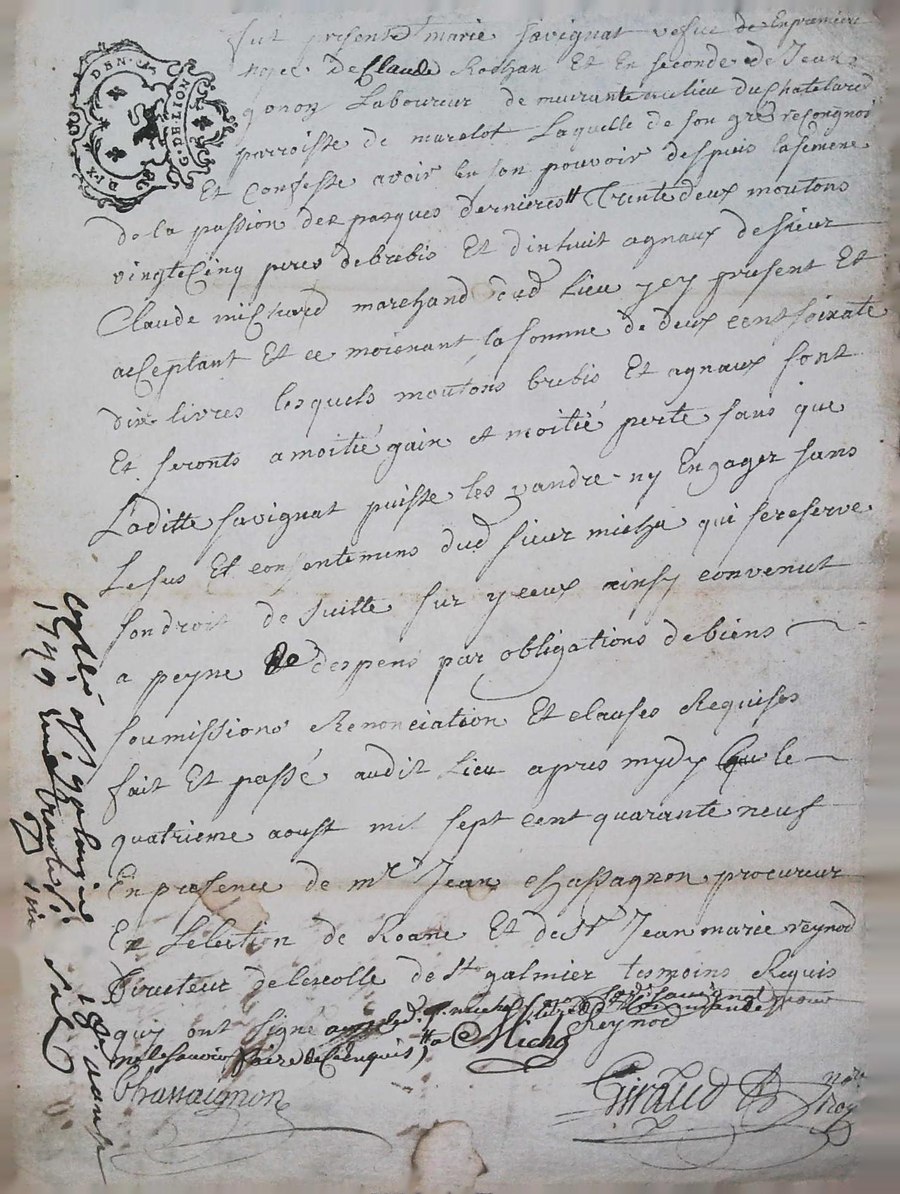 DIX DEN.
G. DE LION
fut presente marie savignat vefue de En premiere
nopce de Claude Rochan Et En seconde de Jean
gonon Laboureur de murante au lieu du Chatelard
parroisse de marclot Laquelle de son gré resongnoi
Et Confesse avoir En son pouvoir despuis la semene
de la passion des pasques dernieres Trente deux moutons
vingte Cinq peres de brebis Et dixhuit agnaux de sieur
Claude michard marchand dud Lieu ycy present Et
acCeptant Et ce moienant la somme de deux cent soixate
dix livres lesquels moutons brebis Et agnaux sont
Et seronts a moitié gain et moitié perte sans que
Laditte savignat puisse les vandre ny Engager sans
Lesus Et consentemens dud sieur micha qui se reserve
son droit de suitte sur yceux ainsy convenut
a peyne de despens par obligations de biens
soumissions Renonciation Et clauses Requises
fait Et passé audit Lieu apres mydy le
quatrieme aoust mil sept cent quarante neuf
En presence de mre Jean chassagnon procureur
En Lelection de Roane Et de Sr Jean marie reynod
Directeur de lescolle de St galmier tesmoins Requis
quy ont signé
ne le savoir faire de ce Enquis
Micha
Reynod
Chassaignon
Giraud
1749